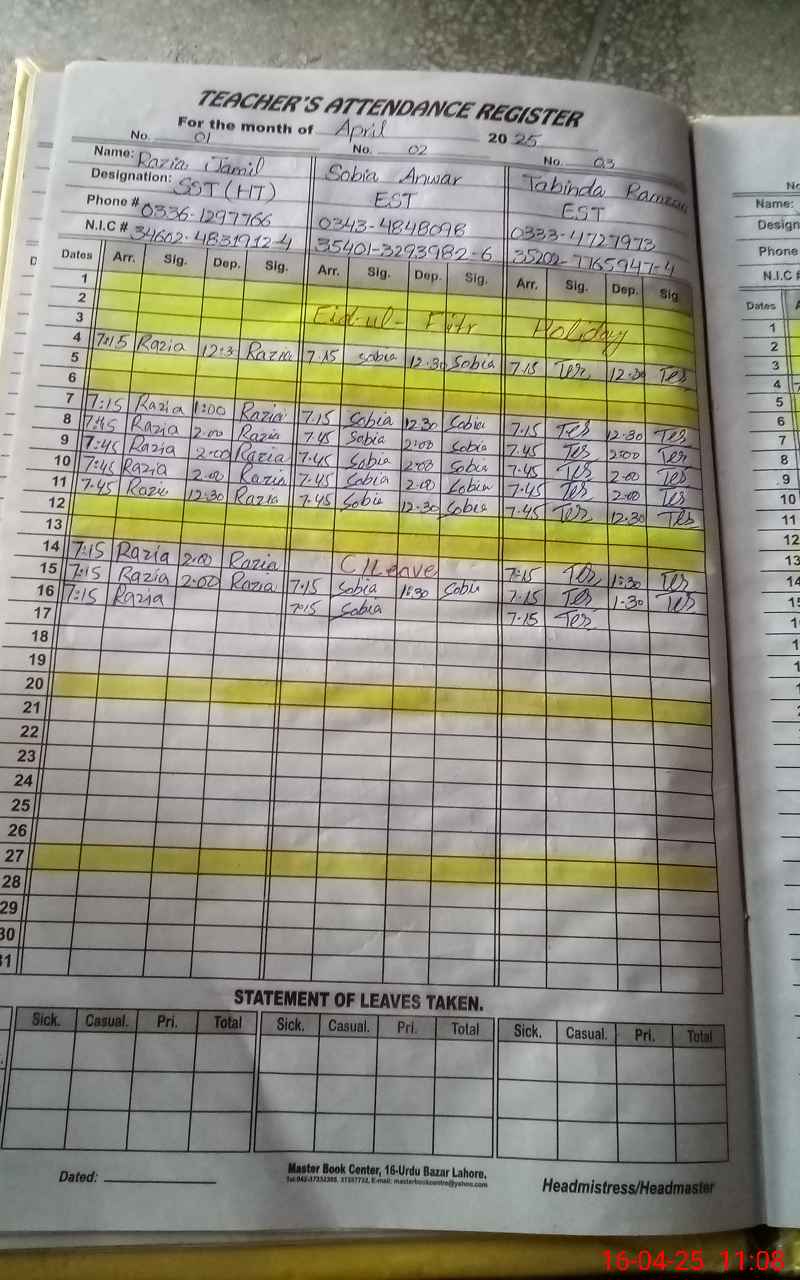 TEACHER'S ATTENDANCE REGISTER
For the month of April 2025
No. 01 No. 02 No. 03
Name: Razia Jamil Sobia Anwar Tabinda Ramzan
Designation: SST (HT) EST EST
Phone # 0336-1297766 0343-4848098 0333-4727973
N.I.C # 34602-4831912-4 35401-3293982-6 35202-7765947-4
Dates Arr. Sig. Dep. Sig. Arr. Sig. Dep. Sig. Arr. Sig. Dep. Sig
1
2
3 Eid-ul-Fitr Holiday
4 7:15 Razia 12:3 Razia 7.15 Sobia 12.30 Sobia 7.15 Tes 12.30 Tes
5
6
7 7:15 Razia 1:00 Razia 7.15 Sobia 12.30 Sobia 7.15 Tes 12.30 Tes
8 7:45 Razia 2:00 Razia 7.45 Sobia 2:00 Sobia 7.45 Tes 2:00 Tes
9 7:45 Razia 2:00 Razia 7.45 Sobia 2:00 Sobia 7.45 Tes 2.00 Tes
10 7:45 Razia 2:00 Razia 7.45 Sobia 2.00 Sobia 7.45 Tes 2.00 Tes
11 7.45 Razia 12:30 Razia 7.45 Sobia 12.30 Sobia 7.45 Tes 12.30 Tes
12
13
14 7:15 Razia 2:00 Razia C/Leave 7:15 Tes 1:30 Tes
15 7:15 Razia 2:00 Razia 7.15 Sobia 1:30 Sobia 7.15 Tes 1.30 Tes
16 7:15 Razia 7:15 Sobia 7.15 Tes
17
18
19
20
21
22
23
24
25
26
27
28
29
30
31
STATEMENT OF LEAVES TAKEN.
Sick. Casual. Pri. Total Sick. Casual. Pri. Total Sick. Casual. Pri. Total
Dated:
Master Book Center, 16-Urdu Bazar Lahore.
Headmistress/Headmaster
Name:
Phone
N.I.C #
Dates
1
2
3
4
5
6
7
8
9
10
11
12
13
14
16-04-25 11:08